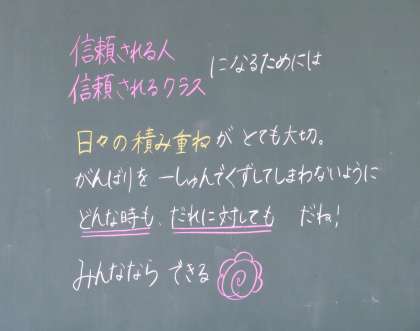 信頼される人
信頼されるクラス
になるためには
日々の積み重ねが とても大切。
がんばりを 一しゅんでくずしてしまわないように
どんな時も、だれに対しても だね!
みんななら できる